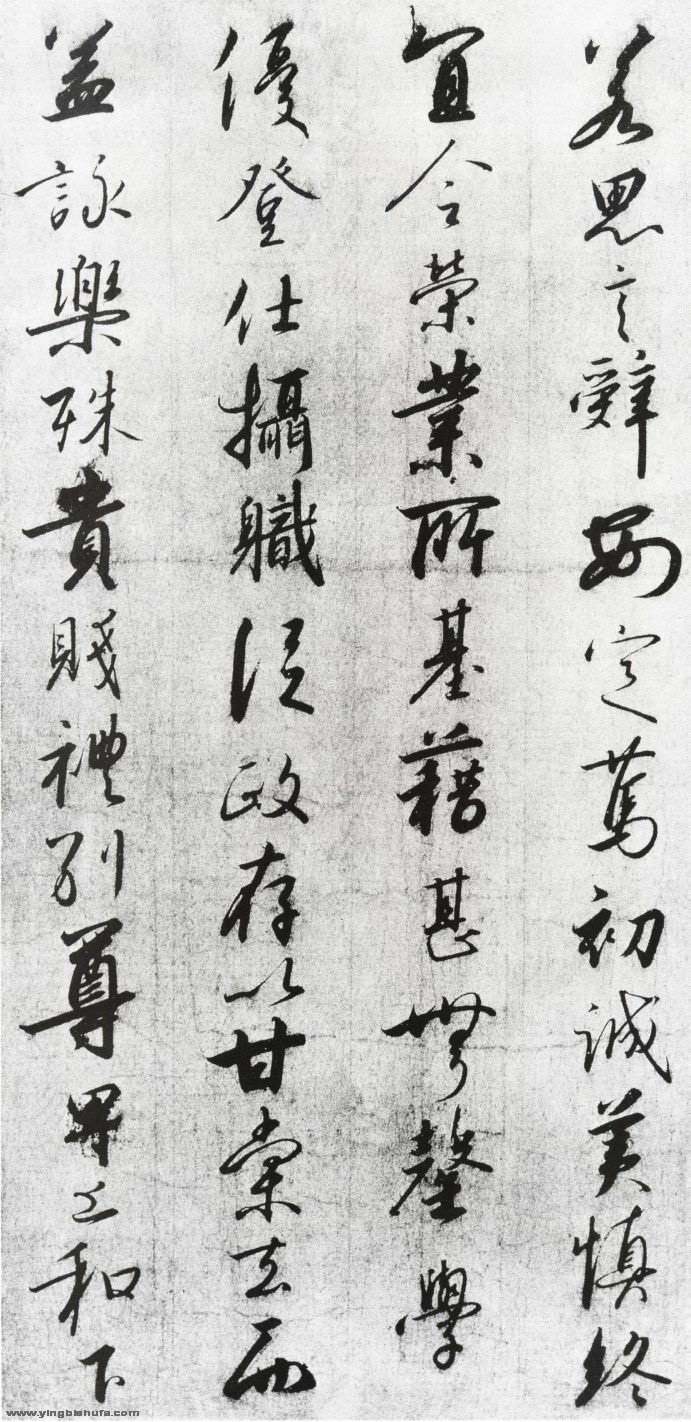 若思言辭安定篤初誠美慎終
宜令榮業所基藉甚無罄學
優登仕攝職從政存以甘棠去而
益詠樂殊貴賤禮別尊卑上和下
www.yingbishufa.com